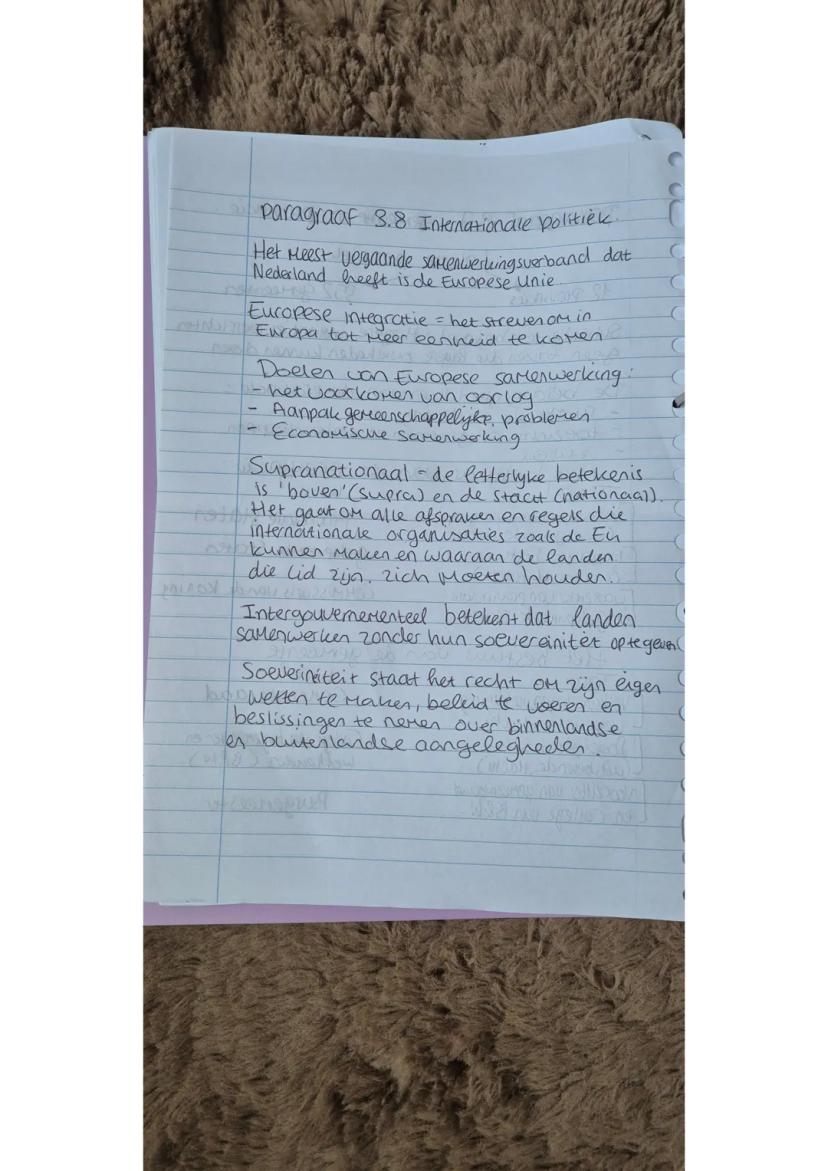 Paragraaf 3.8 Internationale politiek
Het meest vergaande samenwerkingsverband dat
Nederland heeft is de Europese Unie
Europese integratie = het streven om in
Europa tot meer eenheid te komen
Doelen van Europese samenwerking:
- het voorkomen van oorlog
- Aanpak gemeenschappelijke problemen
- Economische samenwerking
Supranationaal - de letterlijke betekenis
is 'boven' (supra) en de staat (nationaal).
Het gaat om alle afspraken en regels die
internationale organisaties zoals de EU
kunnen maken en waaraan de landen
die lid zijn, zich moeten houden.
Intergouvernementeel betekent dat landen
samenwerken zonder hun soevereiniteit optegeven
Soeveriniteit staat het recht om zijn eigen
wetten te maken, beleid te voeren en
beslissingen te nemen over binnenlandse
en buitenlandse aangelegheden.